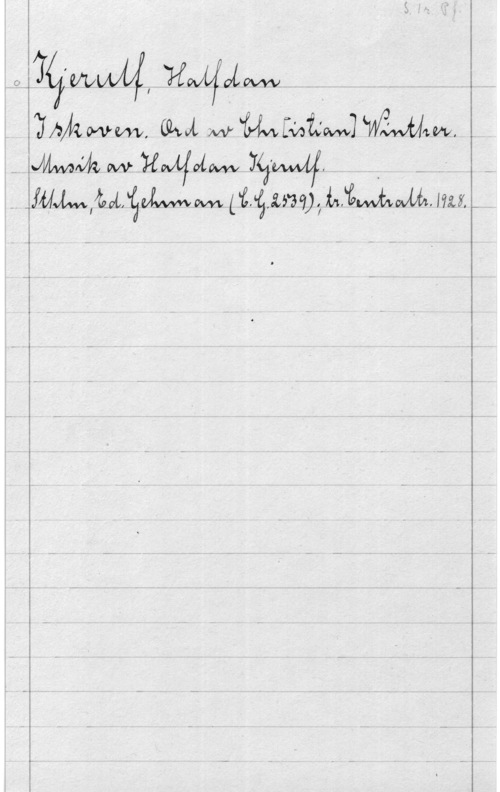 S. 1 r. Pf.
Kjerulf, Halfdan
I skoven. Ord av Chr[istian] Winther.
Musik av Halfdan Kjerulf.
Sthlm, Ed. Gehrman (C.G. 2539); tr. Centraltr. 1928.